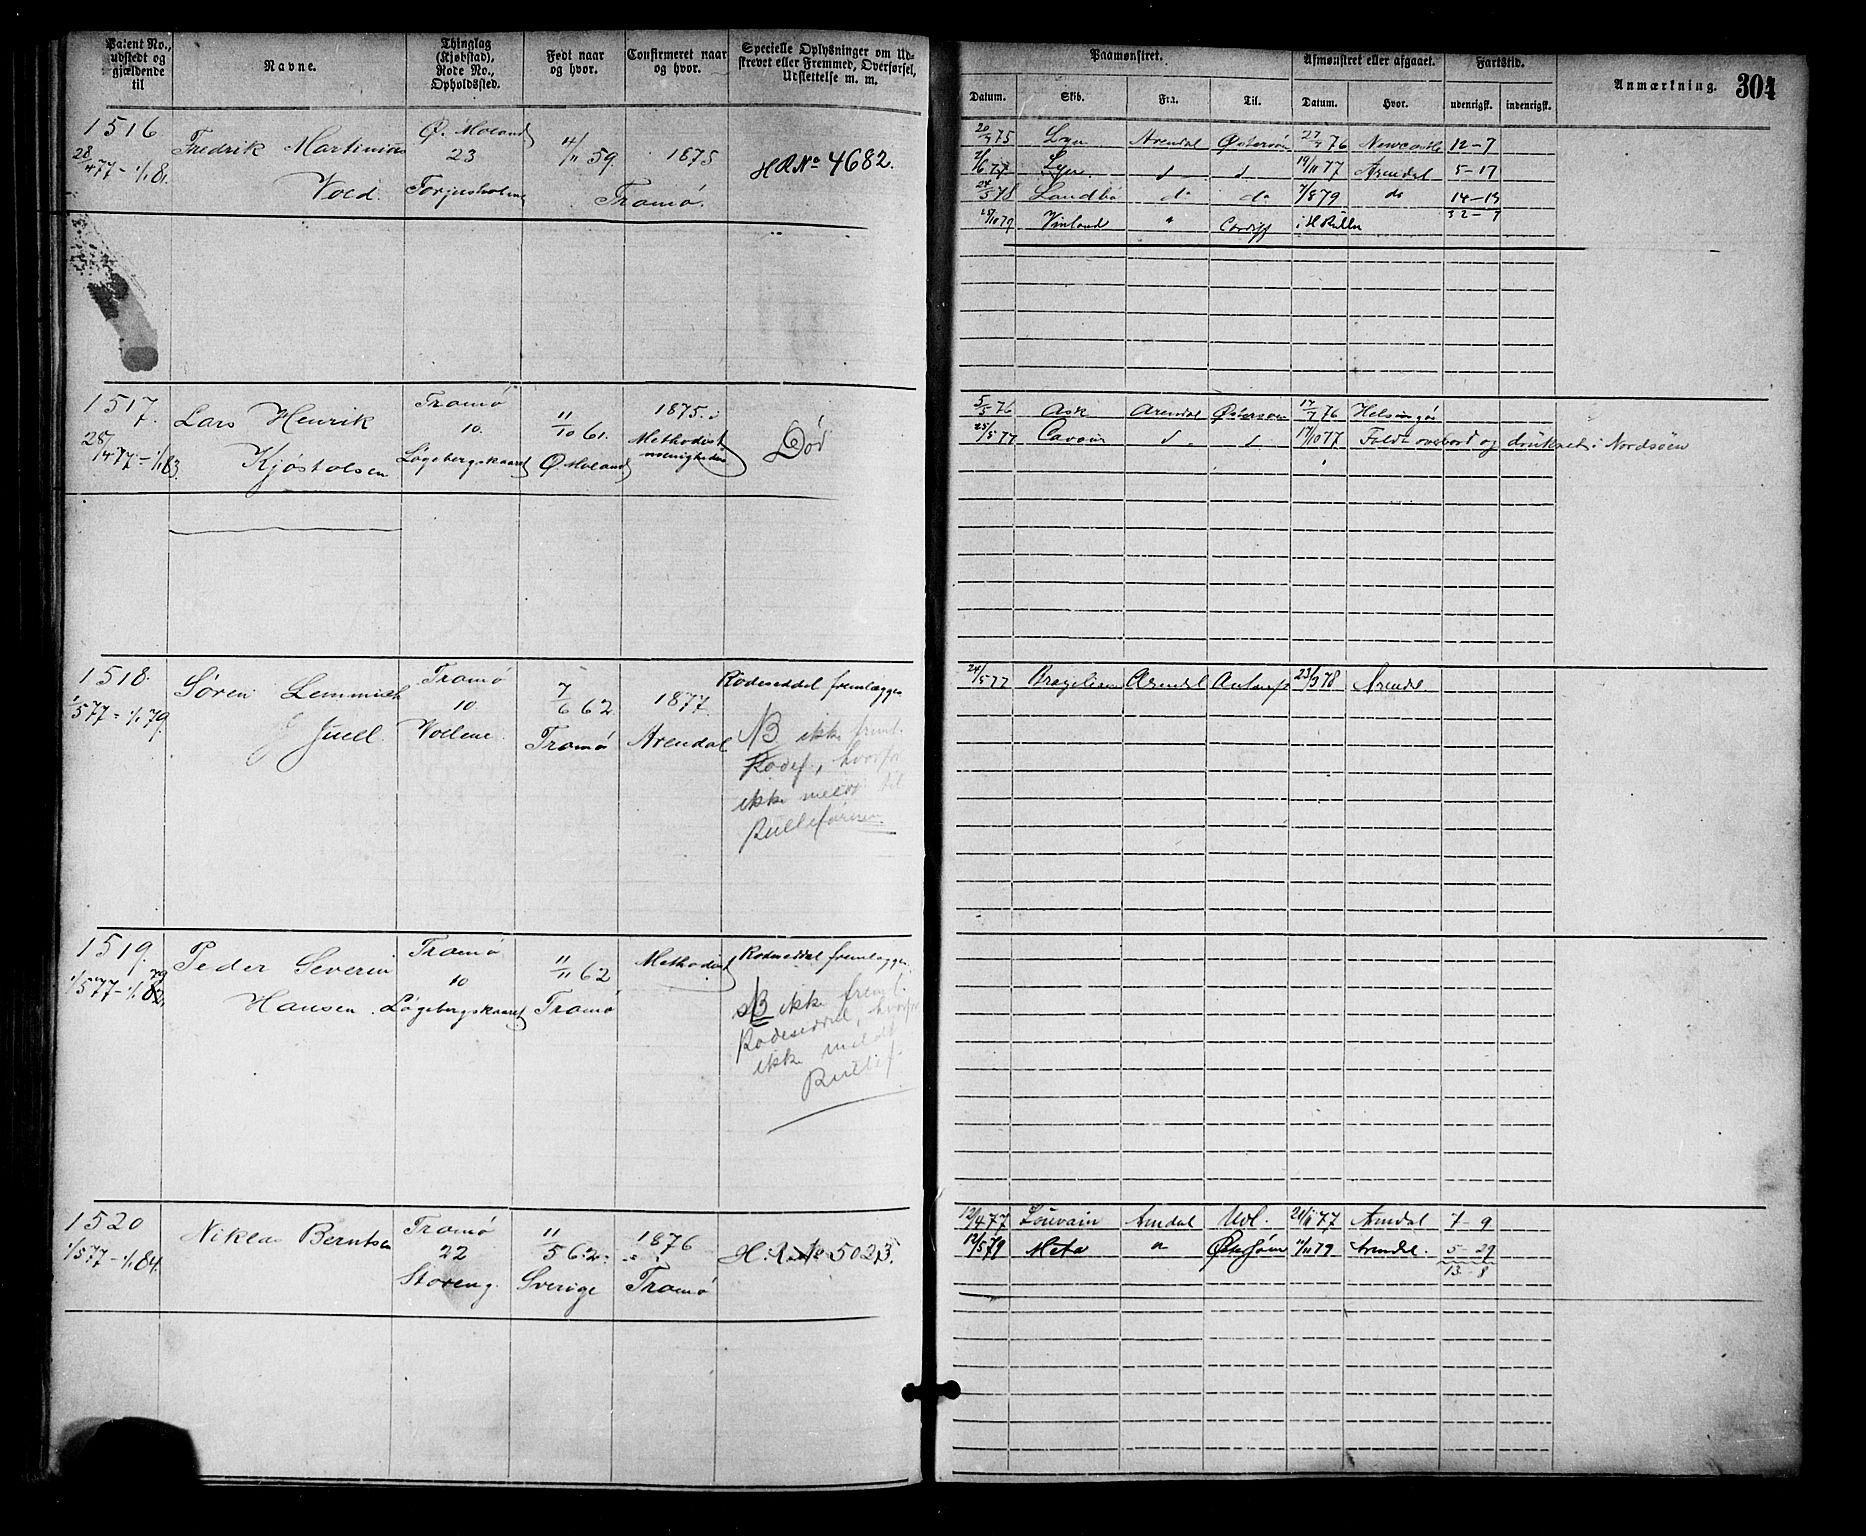 Patent No., udstedt og gjældende til
Navne.
Thinglag (Kjøbstad), Rode No., Opholdssted.
Født naar og hvor.
Confirmeret naar og hvor.
Specielle Oplysninger om Udskrevet eller Fremmed, Overførsel, Udslettelse m. m.
Paamønstret.
Afmønstret eller afgaaet.
Fartstid.
Anmærkning.
304
Datum.
Skib.
Fra.
Til.
Datum.
Hvor.
udenrigsk.
indenrigsk.
1516 Fredrik Martinius Ø. Moland 4/11 59. 1875 HR No 4682.
28/4 77 - 1/1 81. Vold 23 Torjusholme Tromø.
20/4 75 Arendal Østersøn 27/7 76 Newcastle 12-7
Arendal 5-17
24/5 78 Sandbo do do 7/8 79 do 14-13
32-7
28/10 79 Vinland " Cardiff i H Rullen
1517. Lars Henrik Tromø 11/10 61. 1875 i
28/4 77 - 1/1 83. Kjøstolsen 10. Løgebergskaaret Ø Moland Methodist menigheden Død
5/5 76 Ask Arendal Østersøen 17/7 76 Helsingør
25/5 77 Cavour 17/10 77 Faldt overbord og druknet i Nordsøen
1518. Søren Lemmich Tromø 7/6 62 1877. Rodeseddel fremlægges
1/5 77 - 1/1 79. Juell 10 Vollene Tromø Arendal NB ikke freml.
Rodes., hvorfor
ikke meldt til
Rulleføreren
24/5 77 Arendal Antwerp 23/3 78 Arendal
1519. Peder Severin Tromø 11/11 62 Methodist Rodeseddel fremlægges
1/5 77 - 1/1 82. 79 Hansen. 10 Løgebergskaaret Tromø NB ikke freml.
Rodeseddel, hvorfor
ikke meldt
Rullef.
1520 Niklas Berntsen Tromø 11/5 62. 1876 H.R. No 5023.
1/5 77 - 1/1 84. 22 Storeng. Sverige Tromø
12/4 77 Louvain Arendal Udl. 21/11 77 Arendal 7-9
12/5 79 Meta " Østersøen 11/11 79 Arendal. 5-29
13-8